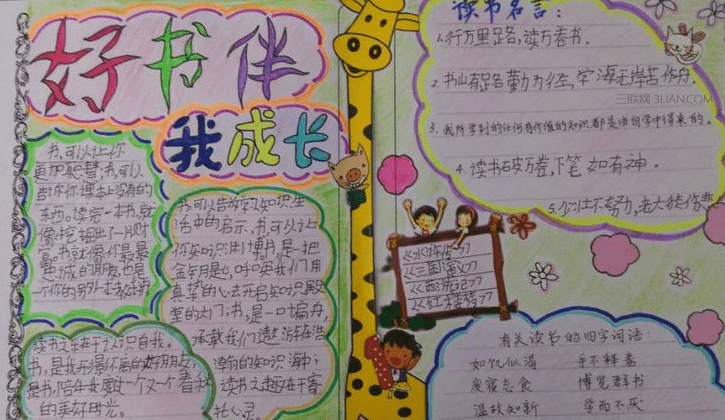 好书伴
我成长
书,可以让你
更加聪慧;书,可以
告诉你课本上没有的
东西。读完一本书,就
像挖掘出了一月财
富。书就像你最最
忠诚的朋友,也是
一个你的另外
书可以告诉学习知识,生
活中的启示,书,可以让
你知识渊博。书,是一把
金钥匙,呼唤我们用
真挚的心去开启知识殿
堂的大门;书,是一叶扁舟,
承载我们遨游在浩
瀚的知识海中;
读书之趣在于寄
托心灵。
读书之乐在于认识自我。
书,是我形影不离的好朋友,
是书,陪伴我度过一个又一个春
的美好时光。
读书名言:
1.行万里路,读万卷书。
2.书山有路勤为径,学海无岸苦作舟。
3.我所学到的任何有价值的知识都是由自学中得来的。
4.读书破万卷,下笔如有神。
5.少壮不努力,老大徒伤悲
三联网 3LIAN.COM
《水浒传》
《三国演义》
《西游记》
《红楼梦》
有关读书的四字词语:
如饥似渴 手不释卷
废寝忘食 博览群书
温故知新 学而不厌